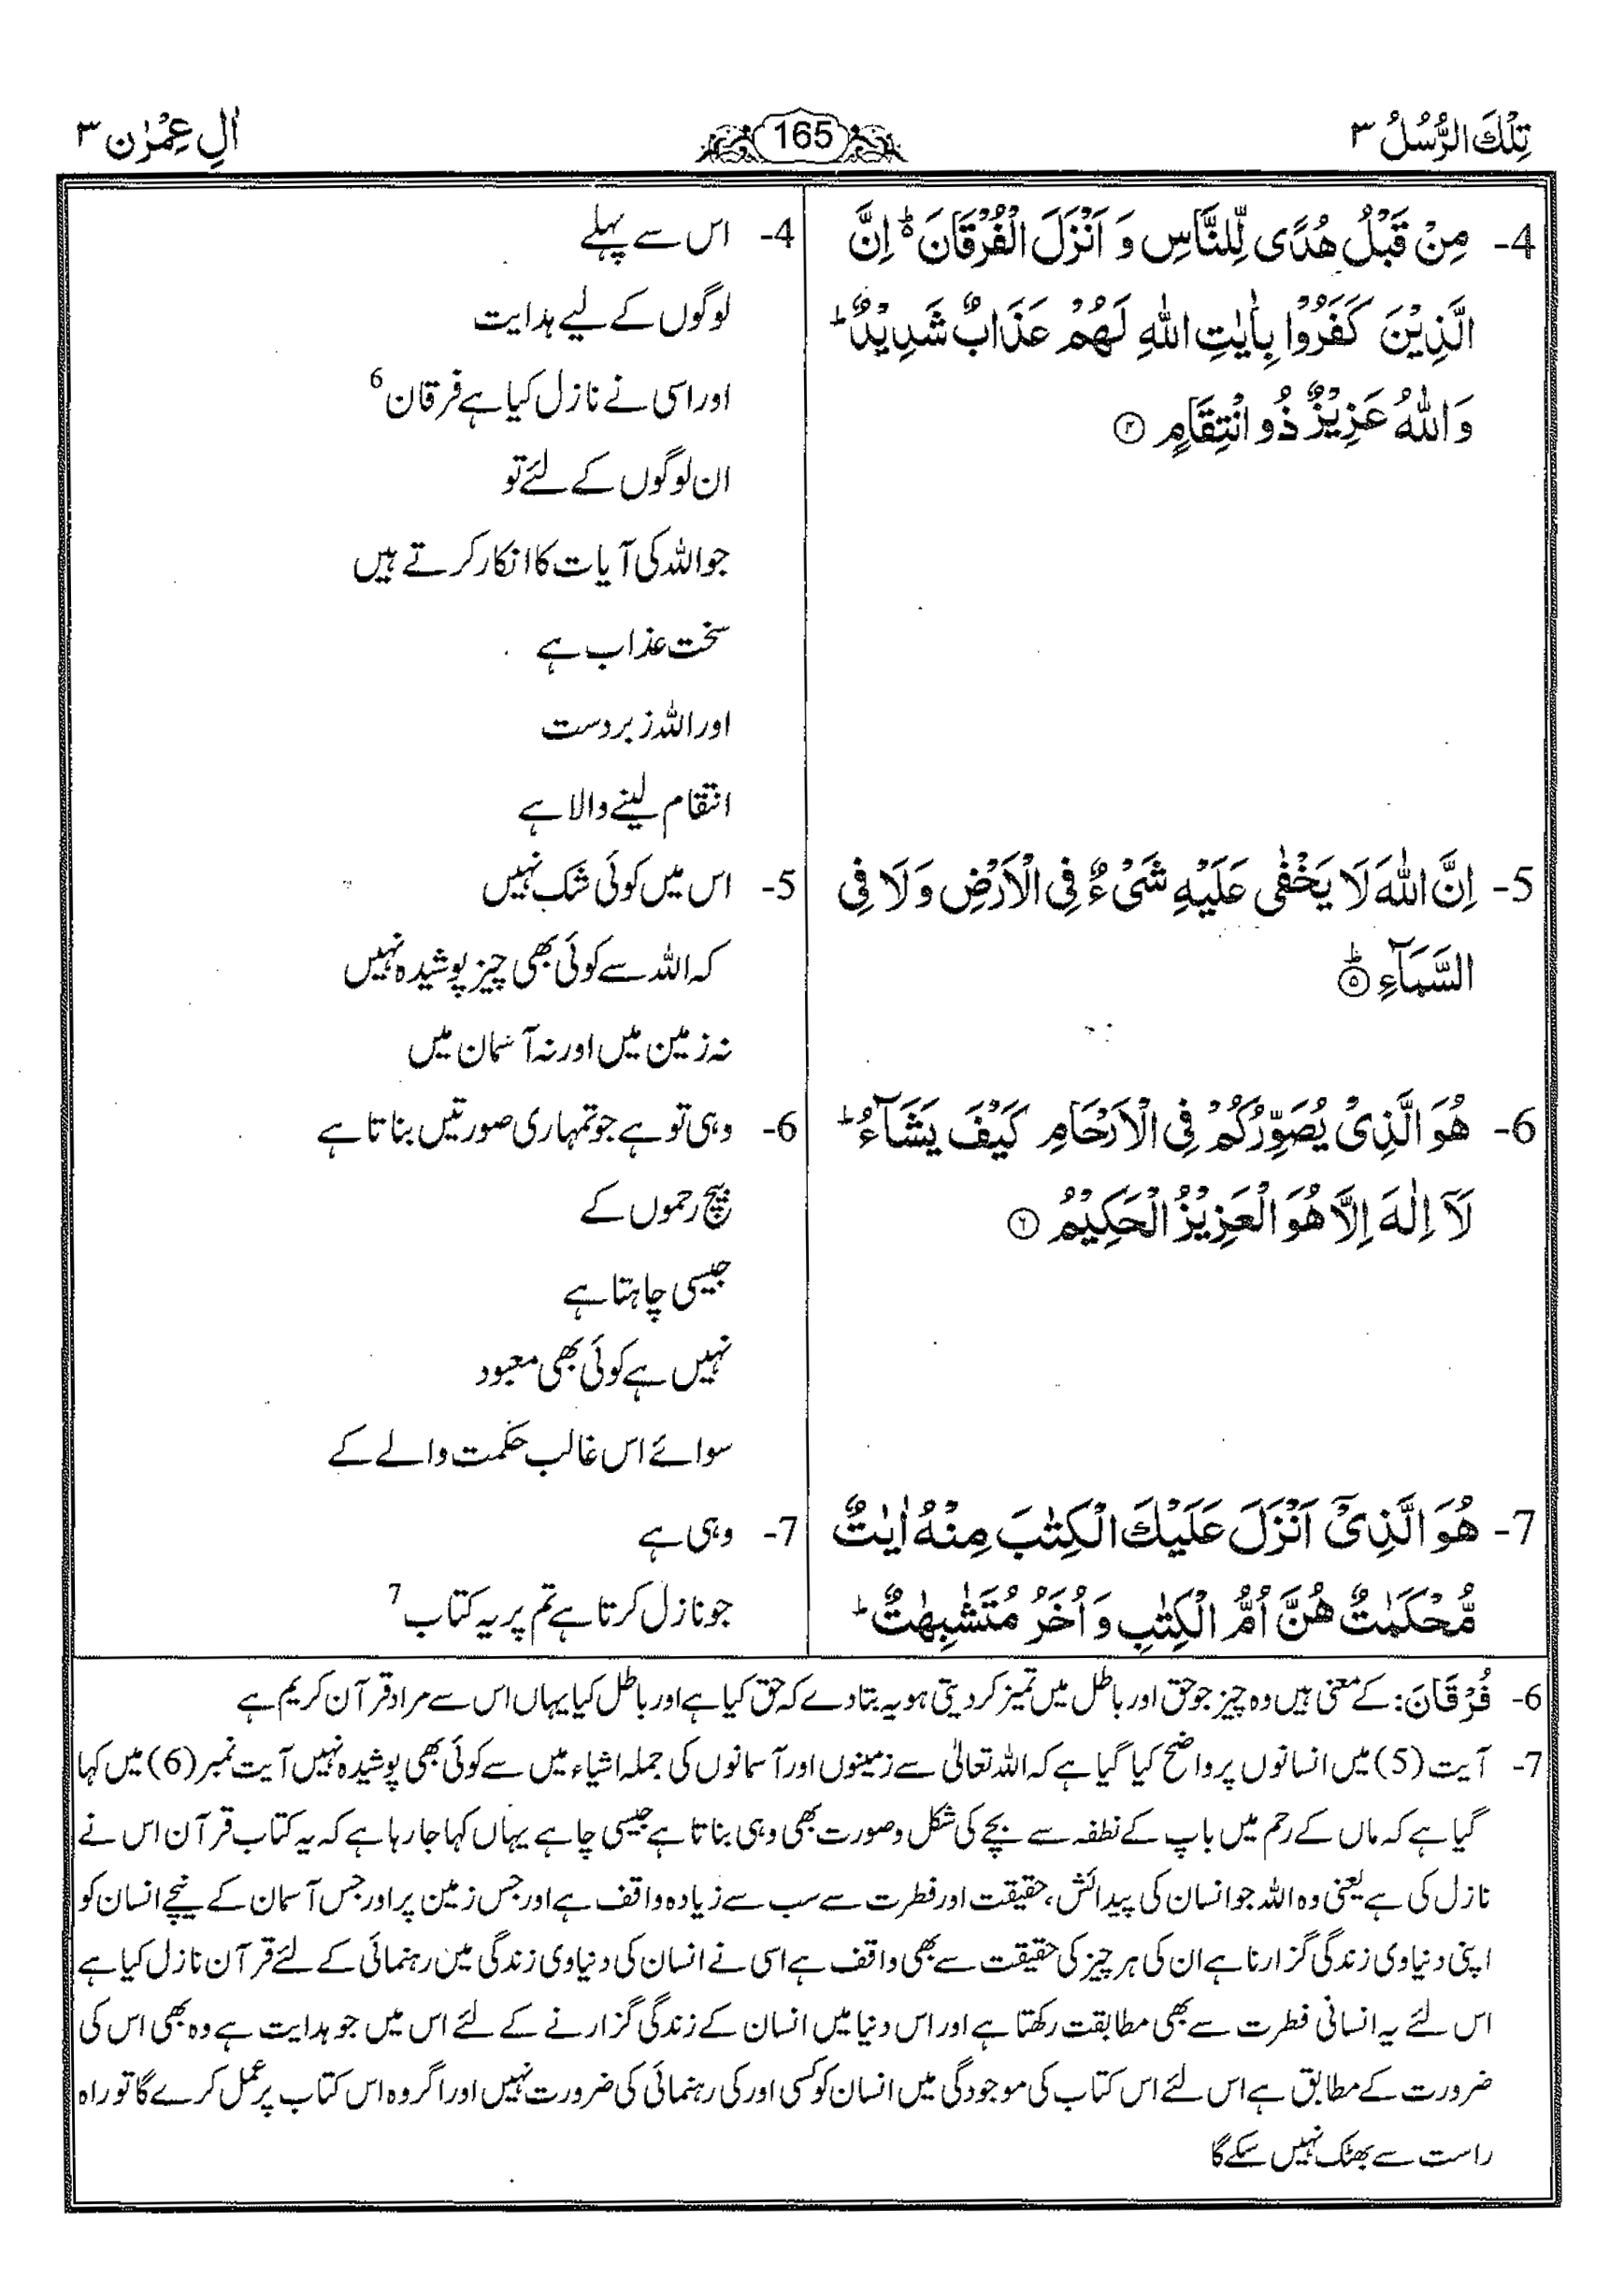 تِلْكَ الرُّسُلُ ۳
165
اٰلِ عِمْرٰن ۳
4- مِنْ قَبْلُ هُدًى لِّلنَّاسِ وَ اَنْزَلَ الْفُرْقَانَ ؕ اِنَّ
الَّذِيْنَ كَفَرُوْا بِاٰيٰتِ اللّٰهِ لَهُمْ عَذَابٌ شَدِيْدٌ ؕ
وَاللّٰهُ عَزِيْزٌ ذُو انْتِقَامٍ ۴
5- اِنَّ اللّٰهَ لَا يَخْفٰى عَلَيْهِ شَىْءٌ فِى الْاَرْضِ وَلَا فِى
السَّمَآءِ ؕ ۵
6- هُوَ الَّذِىْ يُصَوِّرُكُمْ فِى الْاَرْحَامِ كَيْفَ يَشَآءُ ؕ
لَآ اِلٰهَ اِلَّا هُوَ الْعَزِيْزُ الْحَكِيْمُ ۶
7- هُوَ الَّذِىْٓ اَنْزَلَ عَلَيْكَ الْكِتٰبَ مِنْهُ اٰيٰتٌ
مُّحْكَمٰتٌ هُنَّ اُمُّ الْكِتٰبِ وَ اُخَرُ مُتَشٰبِهٰتٌ ؕ
4- اس سے پہلے
لوگوں کے لیے ہدایت
اور اسی نے نازل کیا ہے فرقان 6
ان لوگوں کے لئے تو
جو اللہ کی آیات کا انکار کرتے ہیں
سخت عذاب ہے
اور اللہ زبردست
انتقام لینے والا ہے
5- اس میں کوئی شک نہیں
کہ اللہ سے کوئی بھی چیز پوشیدہ نہیں
نہ زمین میں اور نہ آسمان میں
6- وہی تو ہے جو تمہاری صورتیں بناتا ہے
بیچ رحموں کے
جیسی چاہتا ہے
نہیں ہے کوئی بھی معبود
سوائے اس غالب حکمت والے کے
7- وہی ہے
جو نازل کرتا ہے تم پر یہ کتاب 7
6- فُرْقَانَ: کے معنی ہیں وہ چیز جو حق اور باطل میں تمیز کر دیتی ہو یہ بتا دے کہ حق کیا ہے اور باطل کیا یہاں اس سے مراد قرآن کریم ہے
7- آیت (5) میں انسانوں پر واضح کیا گیا ہے کہ اللہ تعالیٰ سے زمینوں اور آسمانوں کی جملہ اشیاء میں سے کوئی بھی پوشیدہ نہیں آیت نمبر (6) میں کہا
گیا ہے کہ ماں کے رحم میں باپ کے نطفہ سے بچے کی شکل و صورت بھی وہی بناتا ہے جیسی چاہے یہاں کہا جا رہا ہے کہ یہ کتاب قرآن اس نے
نازل کی ہے یعنی وہ اللہ جو انسان کی پیدائش، حقیقت اور فطرت سے سب سے زیادہ واقف ہے اور جس زمین پر اور جس آسمان کے نیچے انسان کو
اپنی دنیاوی زندگی گزارنا ہے ان کی ہر چیز کی حقیقت سے بھی واقف ہے اسی نے انسان کی دنیاوی زندگی میں رہنمائی کے لئے قرآن نازل کیا ہے
اس لئے یہ انسانی فطرت سے بھی مطابقت رکھتا ہے اور اس دنیا میں انسان کے زندگی گزارنے کے لئے اس میں جو ہدایت ہے وہ بھی اس کی
ضرورت کے مطابق ہے اس لئے اس کتاب کی موجودگی میں انسان کو کسی اور کی رہنمائی کی ضرورت نہیں اور اگر وہ اس کتاب پر عمل کرے گا تو راہ
راست سے بھٹک نہیں سکے گا